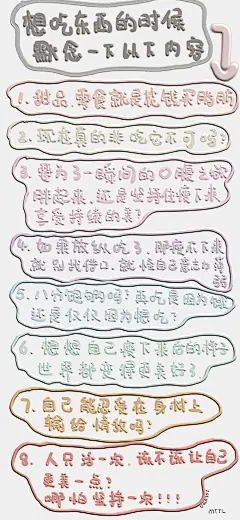 想吃东西的时候
默念一下以下内容
1. 甜品、零食就是忧钱买脂肪
2. 现在真的非吃它不可吗？
3. 要为了一瞬间的口腹之欲
胖起来，还是坚持住瘦下来
享受持续的美？
4. 如果放纵吃了，那瘦不下来
就别找借口，就怪自己意志力薄弱
5. 八分饱了吗？再吃是因为饿
还是仅仅因为想吃？
6. 想想自己瘦下来后的样子
世界都变得更美好了
7. 自己能忍受在身材上
输给情敌吗？
8. 人只活一次，该不该让自己
更美一点？
哪怕坚持一次！！！